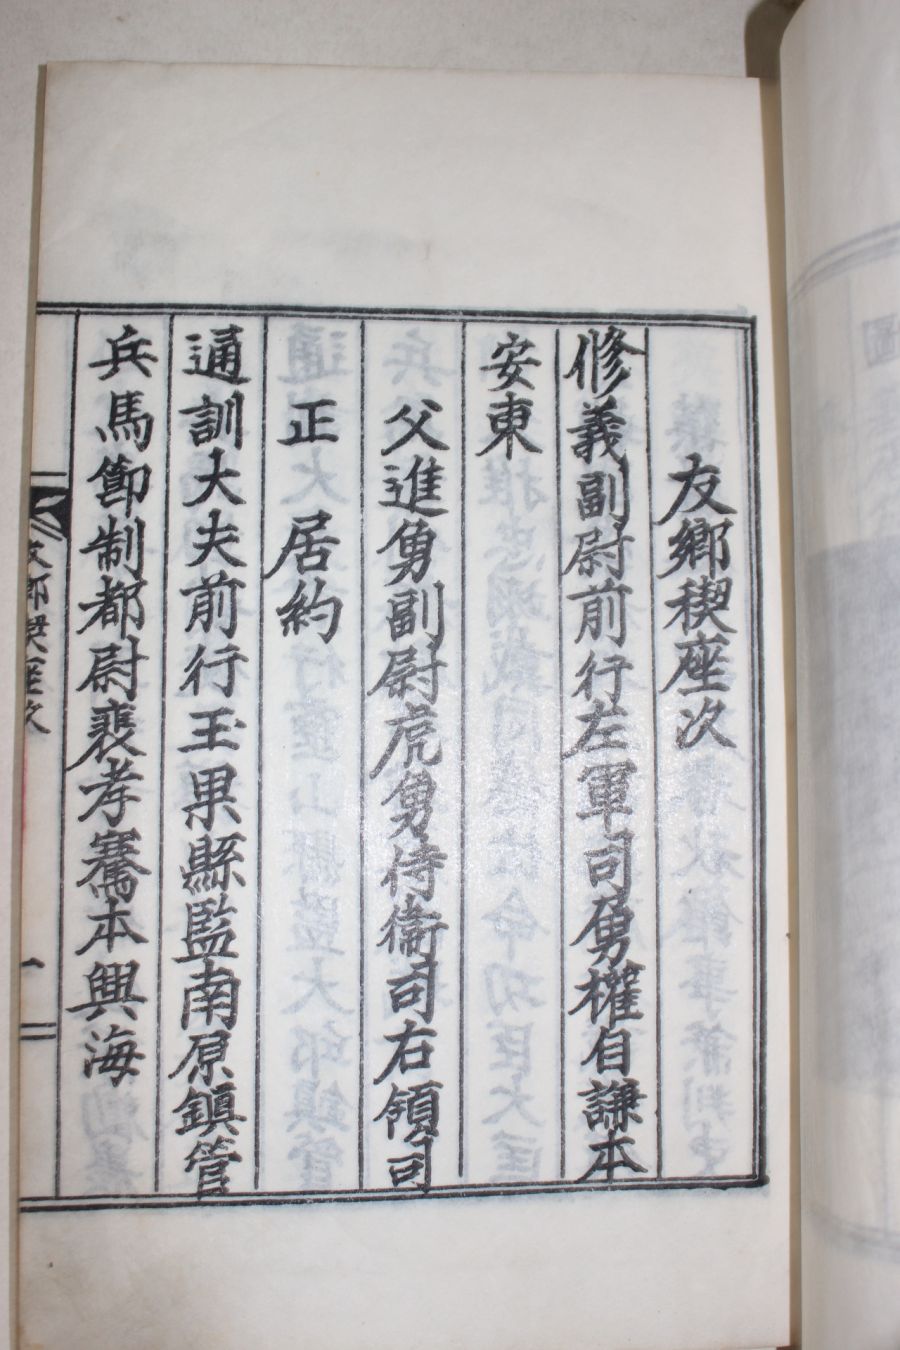 友鄉稧座次
修義副尉前行左軍司勇權自謙本
安東
父進勇副尉虎勇侍衛司右領司
正 居約
通訓大夫前行玉果縣監南原鎮管
兵馬節制都尉裴孝騫本興海
友鄉稧座次 一